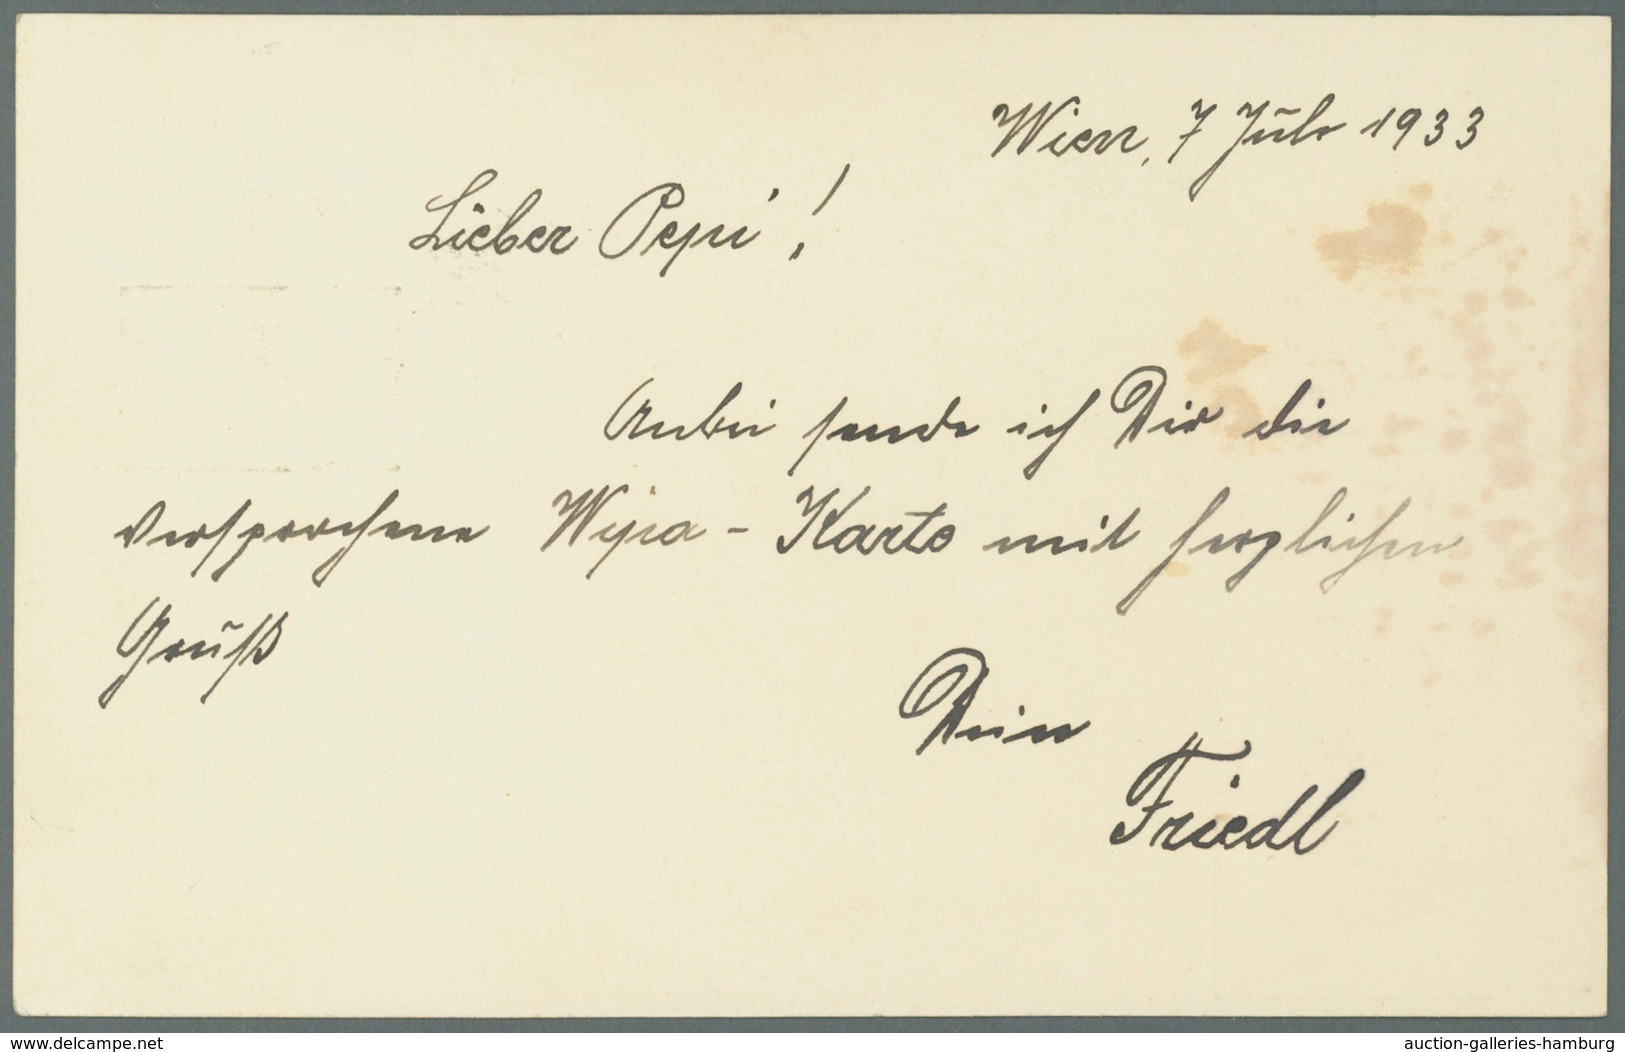 Wien, 7 Juli 1933
Lieber Pepi!
Anbei sende ich Dir die
versprochene Wipa-Karte mit herzlichem
Gruß
Dein
Friedl
www.delcampe.net
auction-galleries-hamburg